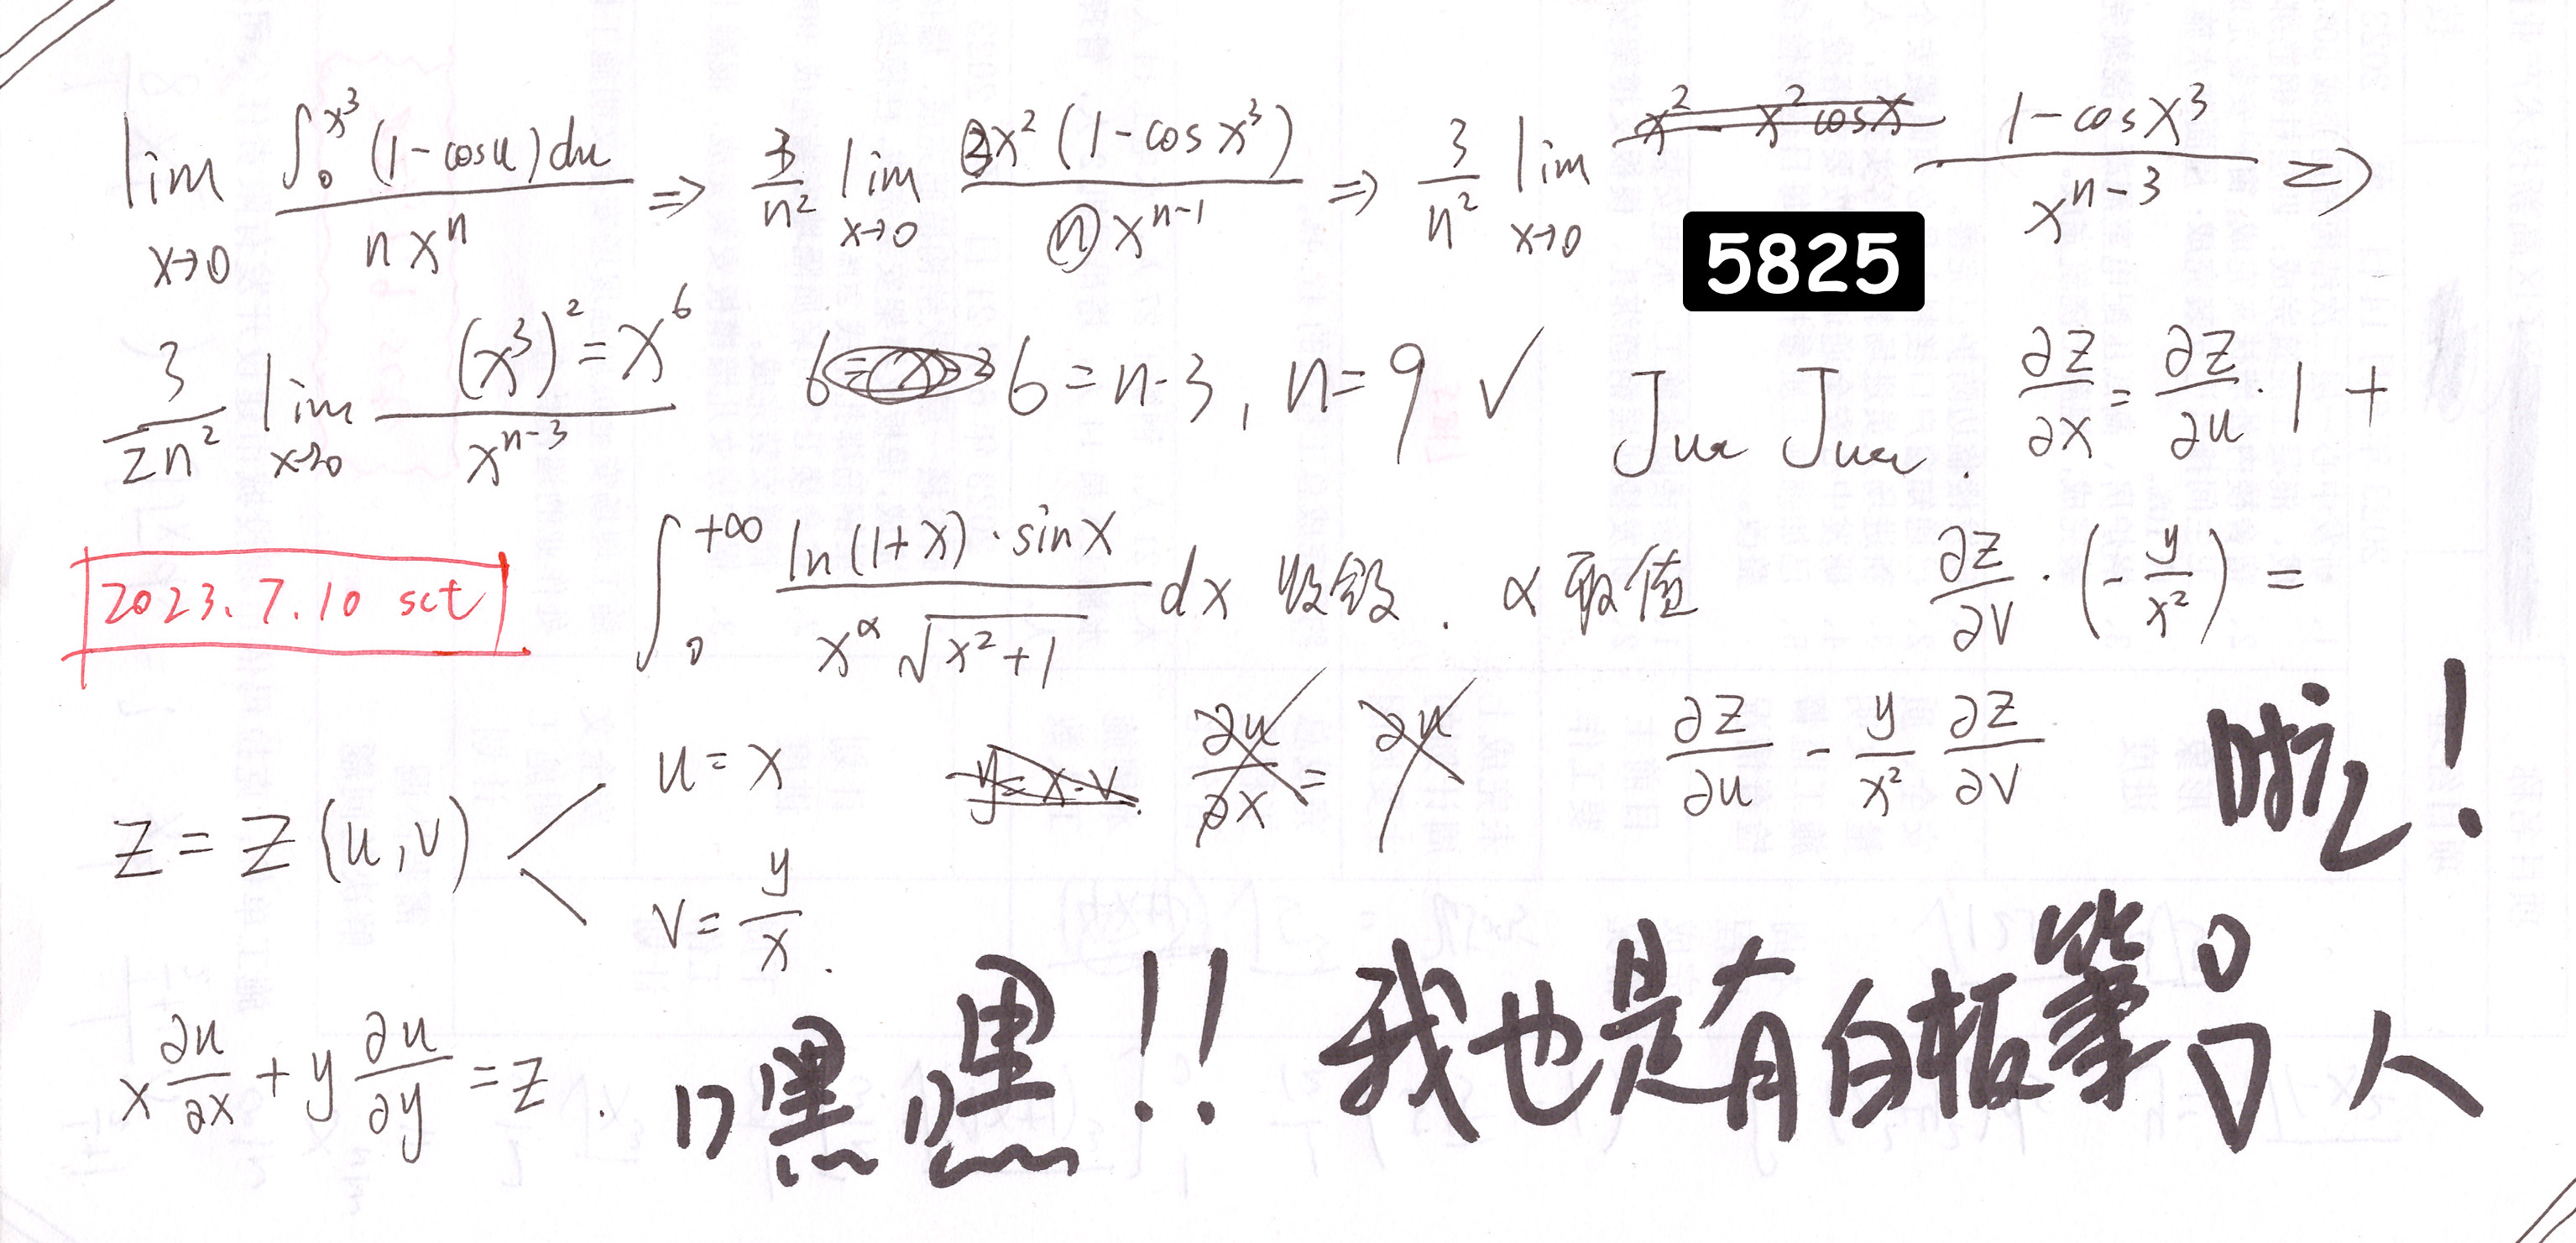 lim x→0 ∫₀^x³ (1-cosu)du / n xⁿ ⇒ 3/n² lim x→0 3x² (1-cosx³) / n x^(n-1) ⇒ 3/n² lim x→0 x² - x² cosx 1-cosx³ / x^(n-3) ⇒
5825
3/2n² lim x→0 (x³)² = x⁶ / x^(n-3) 6 6 = n-3, n=9 ✓
∂z/∂x = ∂z/∂u · 1 +
2023.7.10 sct
∫₀^+∞ ln(1+x)·sinx / x^α √(x²+1) dx 收敛. α取值
∂z/∂v · (-y/x²) =
∂z/∂u - y/x² ∂z/∂v
z = z(u,v)
u = x
y=x·v
∂u/∂x = ∂u
v = y/x.
啦!
x ∂u/∂x + y ∂u/∂y = z.
嘿嘿!! 我也是有白板筆的人